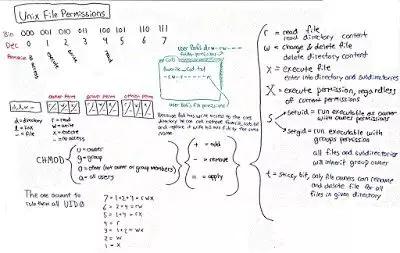 Unix File Permissions
Bin 000 001 010 011 100 101 110 111
Dec 0 1 2 3 4 5 6 7
no access
execute
write
read
user Bob's drw-rw----
favorite_Cat.txt
-rw-r-----
user Bob's file permissions
d,l, or -
owner perm
group perm
other perm
d = directory
l = link
- = file
r = read
w = write
x = execute
- = no access
Because Bob has write access to the cats
directory he can still remove favorite_cat.txt
and replace it with his own file by the same
name
CHMOD
u = owner
g = group
o = other (not owner or group members)
a = all users
+ = add
- = remove
= = apply
The one account to
rule them all UID 0
7 = 1+2+4 = rwx
6 = 2+4 = rw
5 = 1+4 = rx
4 = r
3 = 1+2 = wx
2 = w
1 = x
r = read file
read directory content
w = change & delete file
delete directory content
x = execute file
enter into directory and subdirectories
X = execute permission, regardless
of current permissions
s
setuid = run executable as owner
with owner permissions
setgid = run executable with
groups permission
all files and subdirectories
will inherit group owner
t = sticky bit, only file owners can rename
and delete file for all
files in given directory